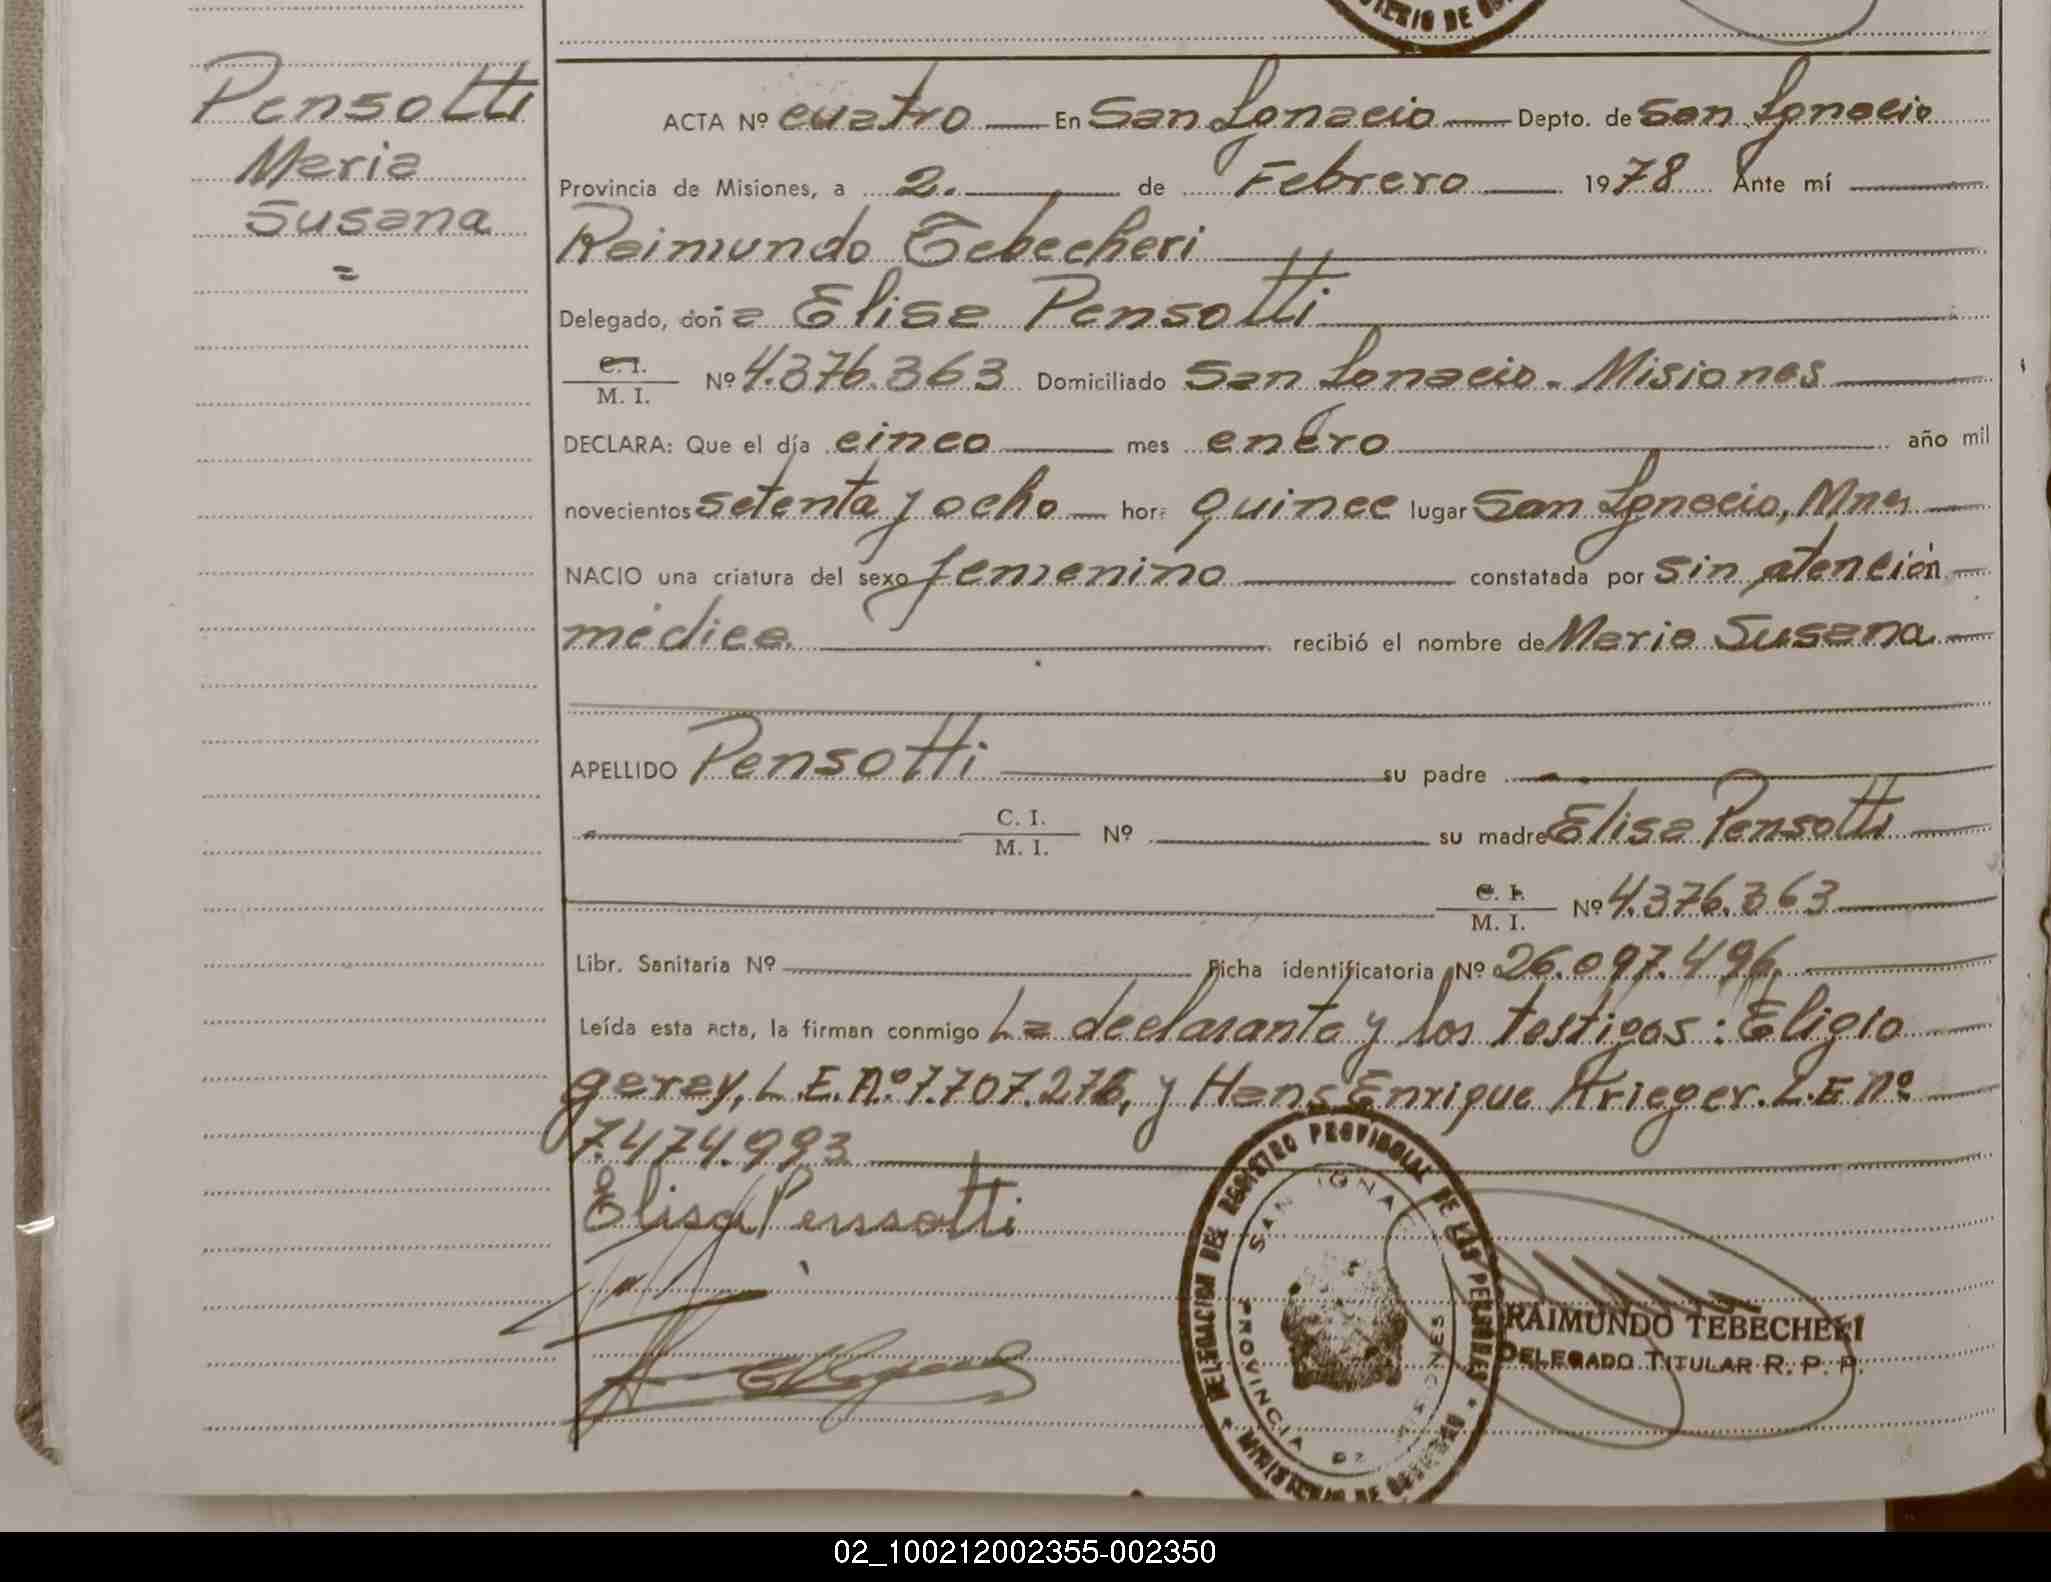 Pensotti
Maria
Susana
=
TERIO DE
ACTA Nº cuatro En San Ignacio Depto. de San Ignacio
Provincia de Misiones, a 2. de Febrero 1978 Ante mí
Raimundo Tebecheri
Delegado, doña Elisa Pensotti
C. I. / M. I. Nº 4.376.363 Domiciliado San Ignacio. Misiones
DECLARA: Que el día cinco mes enero año mil
novecientos setenta y ocho hora quince lugar San Ignacio, Mnes
NACIO una criatura del sexo femenino constatada por sin atención
médica. recibió el nombre de Maria Susana
APELLIDO Pensotti su padre
C. I. / M. I. Nº su madre Elisa Pensotti
C. I. / M. I. Nº 4.376.363
Libr. Sanitaria Nº Ficha identificatoria Nº 26.097.496
Leída esta acta, la firman conmigo La declarante y los testigos: Eligio
Garay, L.E.Nº 7.707.276, y Hans Enrique Krieger. L.E Nº
7.474.993
Elisa Penssotti
DELEGACION DEL REGISTRO PROVINCIAL DE LAS PERSONAS
SAN IGNACIO
PROVINCIA DE MISIONES
MINISTERIO DE GOBIERNO
RAIMUNDO TEBECHERI
DELEGADO TITULAR R. P. P.
02_100212002355-002350